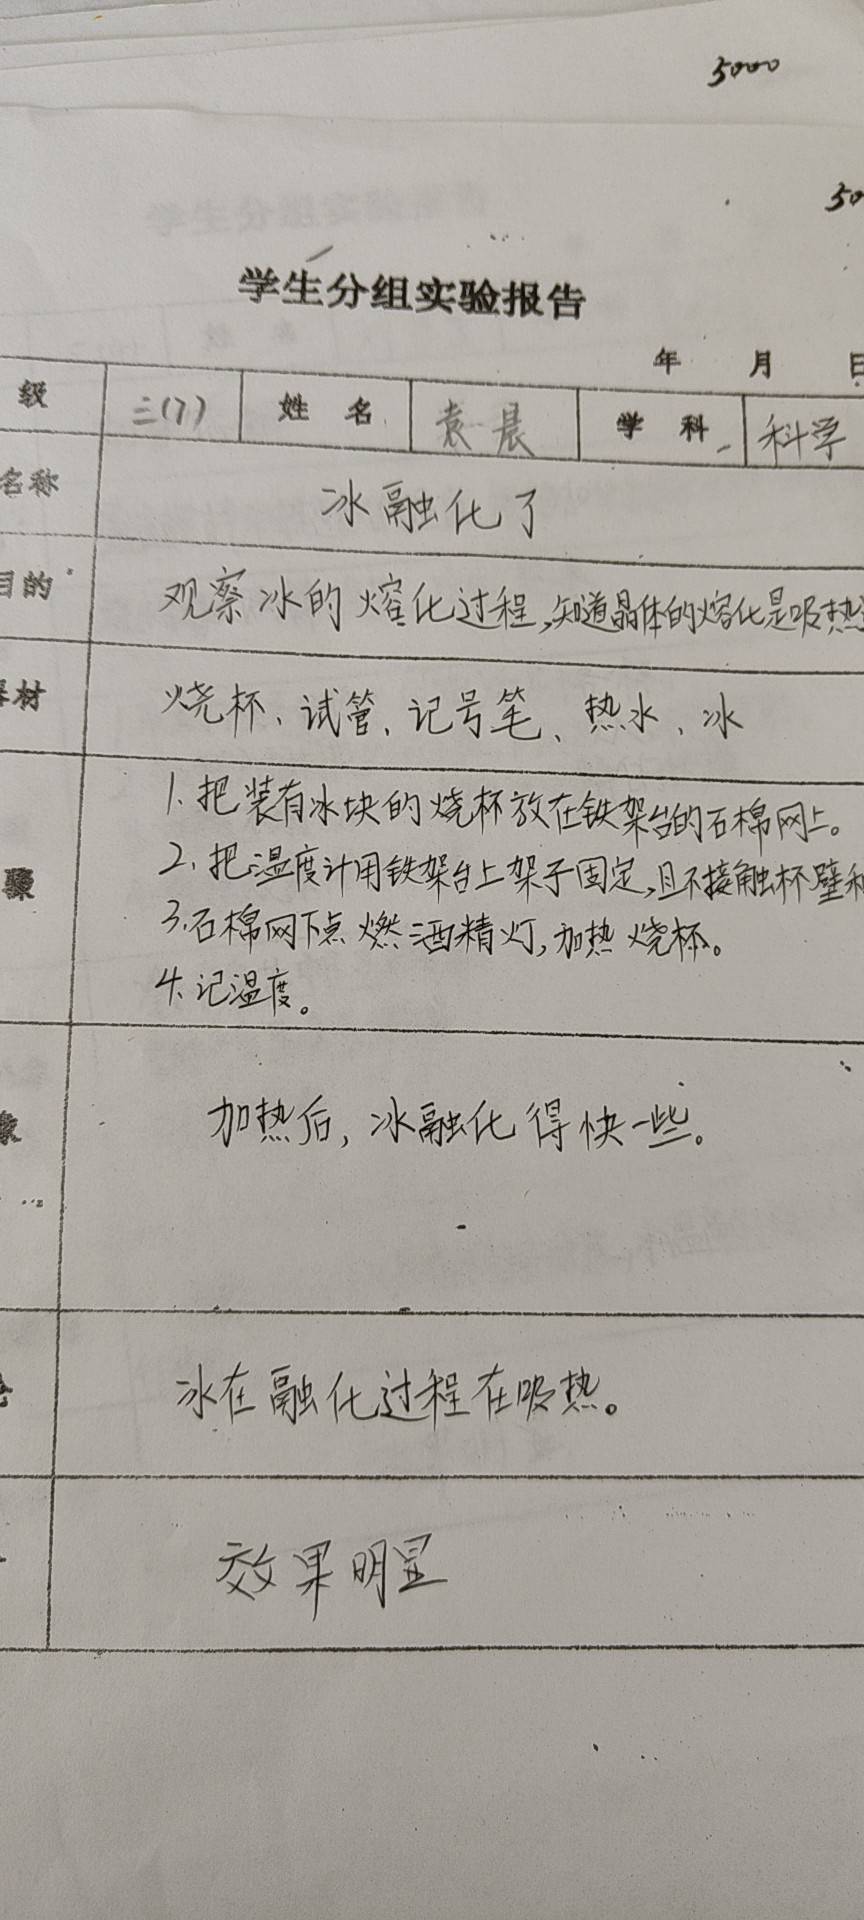 5000
50
学生分组实验报告
年 月 日
级 三(7) 姓 名 袁晨 学 科 科学
名称 冰融化了
目的 观察冰的熔化过程,知道晶体的熔化是吸热
材 烧杯、试管、记号笔、热水、冰
1、把装有冰块的烧杯放在铁架台的石棉网上。
骤 2、把温度计用铁架台上架子固定,且不接触杯壁和
3、石棉网下点燃酒精灯,加热烧杯。
4、记温度。
象 加热后,冰融化得快一些。
冰在融化过程在吸热。
效果明显